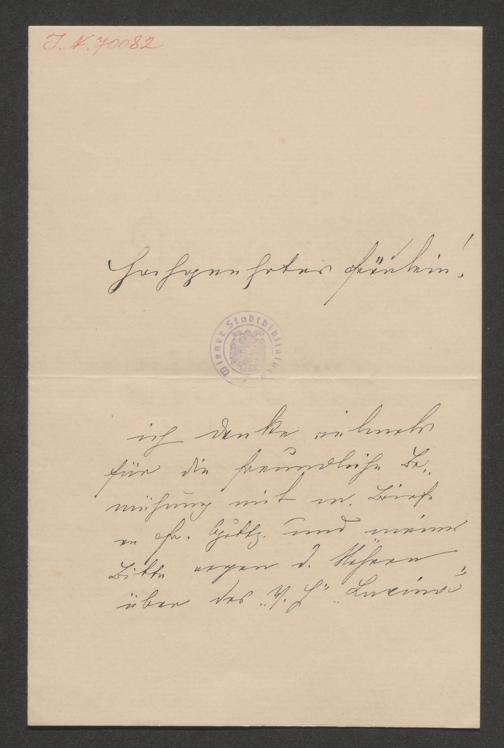 J. N. 70082
Hochgeehrtes Fräulein!
Wiener Stadtbibliothek
ich danke vielmals
für die freundliche Be-
mühung mit m. Brief
an Fr. und meiner
Bitte wegen d. Näheren
über das